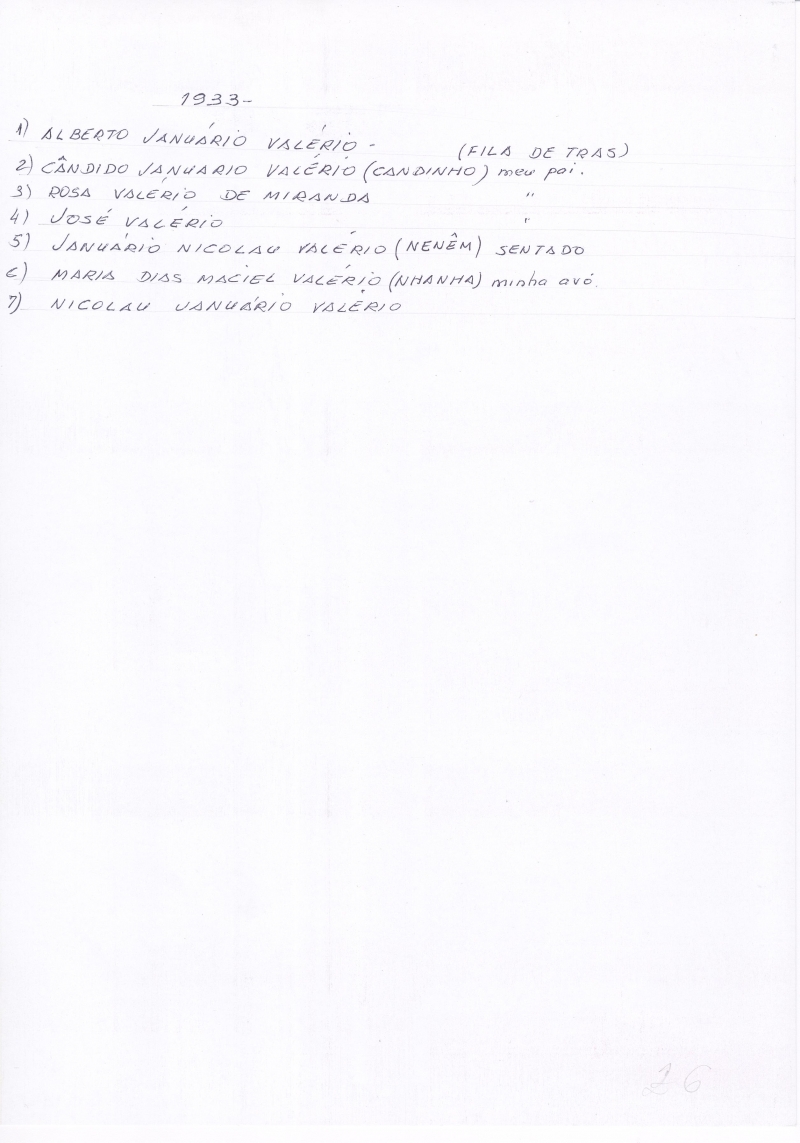 1933-
1) ALBERTO JANUÁRIO VALÉRIO - (FILA DE TRAS)
2) CÂNDIDO JANUÁRIO VALÉRIO (CANDINHO) meu pai.
3) ROSA VALÉRIO DE MIRANDA "
4) JOSÉ VALÉRIO "
5) JANUÁRIO NICOLAU VALÉRIO (NENÊM) SENTADO
6) MARIA DIAS MACIEL VALÉRIO (NHANHA) minha avó.
7) NICOLAU JANUÁRIO VALÉRIO
26